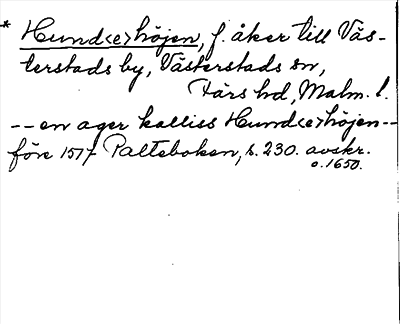 * Hund<e>höjen, f. åker till Väs-
terstads by, Västerstads sn,
Färs hd, Malm. l.
-- en ager kalliss Hund<e>höjen --
före 1517 Palteboken, s. 230. avskr.
o. 1650.